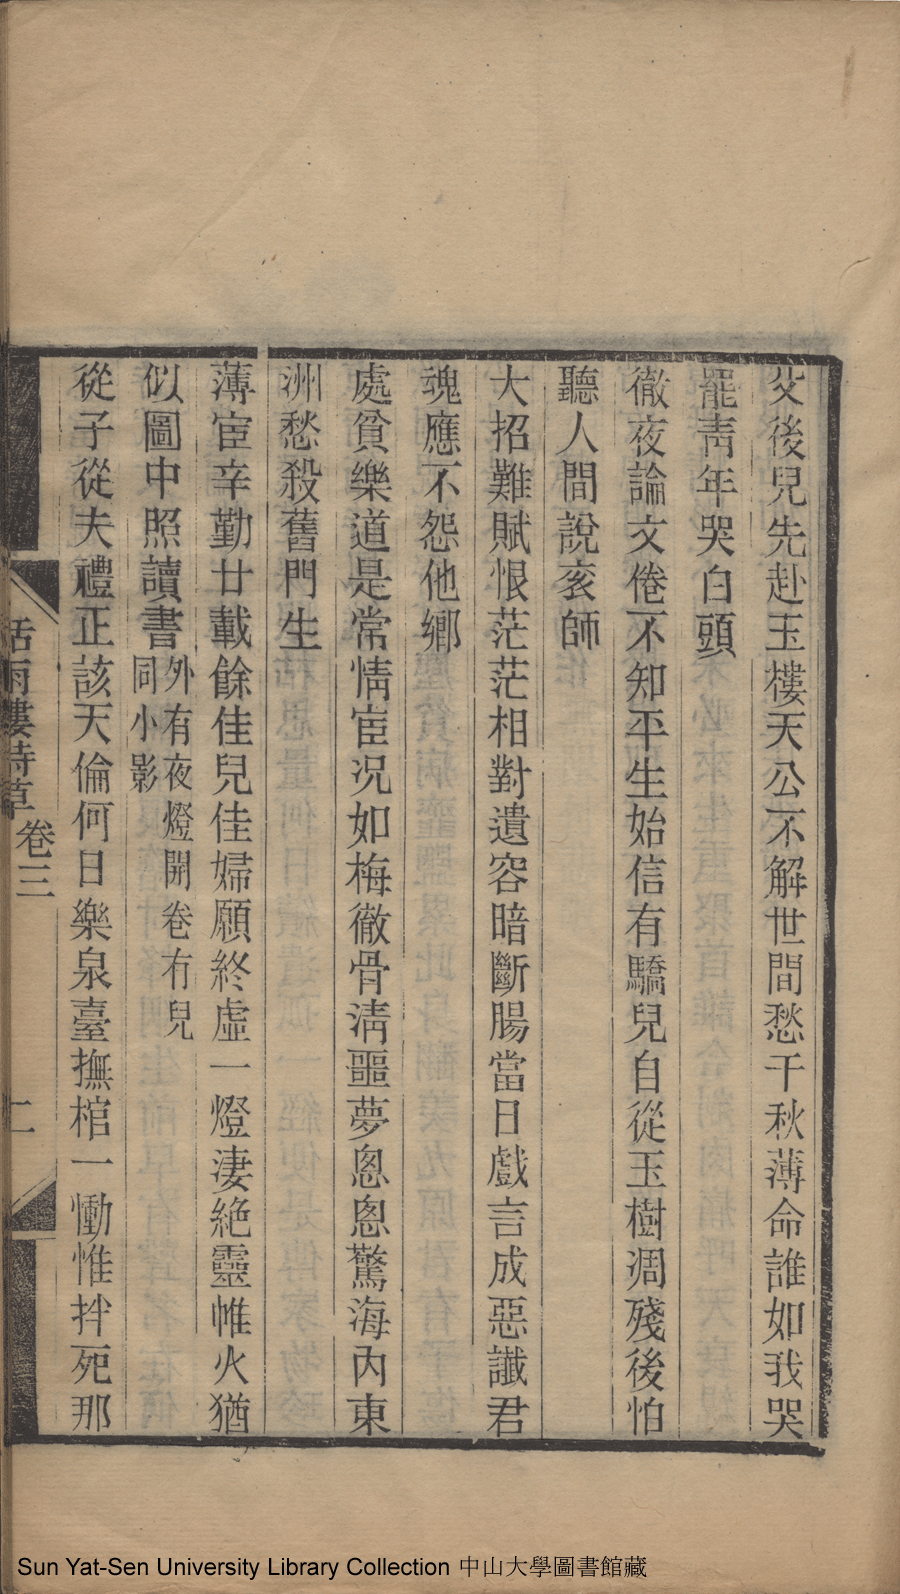 父後兒先赴玉樓天公不解世間愁千秋薄命誰如我哭
罷靑年哭白頭
徹夜論文倦不知平生始信有驕兒自從玉樹凋殘後怕
聽人間說亥師
大招難賦恨茫茫相對遺容暗斷腸當日戲言成惡讖君
魂應不怨他鄉
處貧樂道是常情宦况如梅徹骨清噩夢悤悤驚海內東
洲愁殺舊門生
薄宦辛勤廿載餘佳兒佳婦願終虛一燈淒絶靈帷火猶
似圖中照讀書外有夜燈開卷冇兒
同小影
從子從夫禮正該天倫何日樂泉臺撫棺一慟惟拌死那
話雨樓詩草
卷三
二
Sun Yat-Sen University Library Collection 中山大學圖書館藏